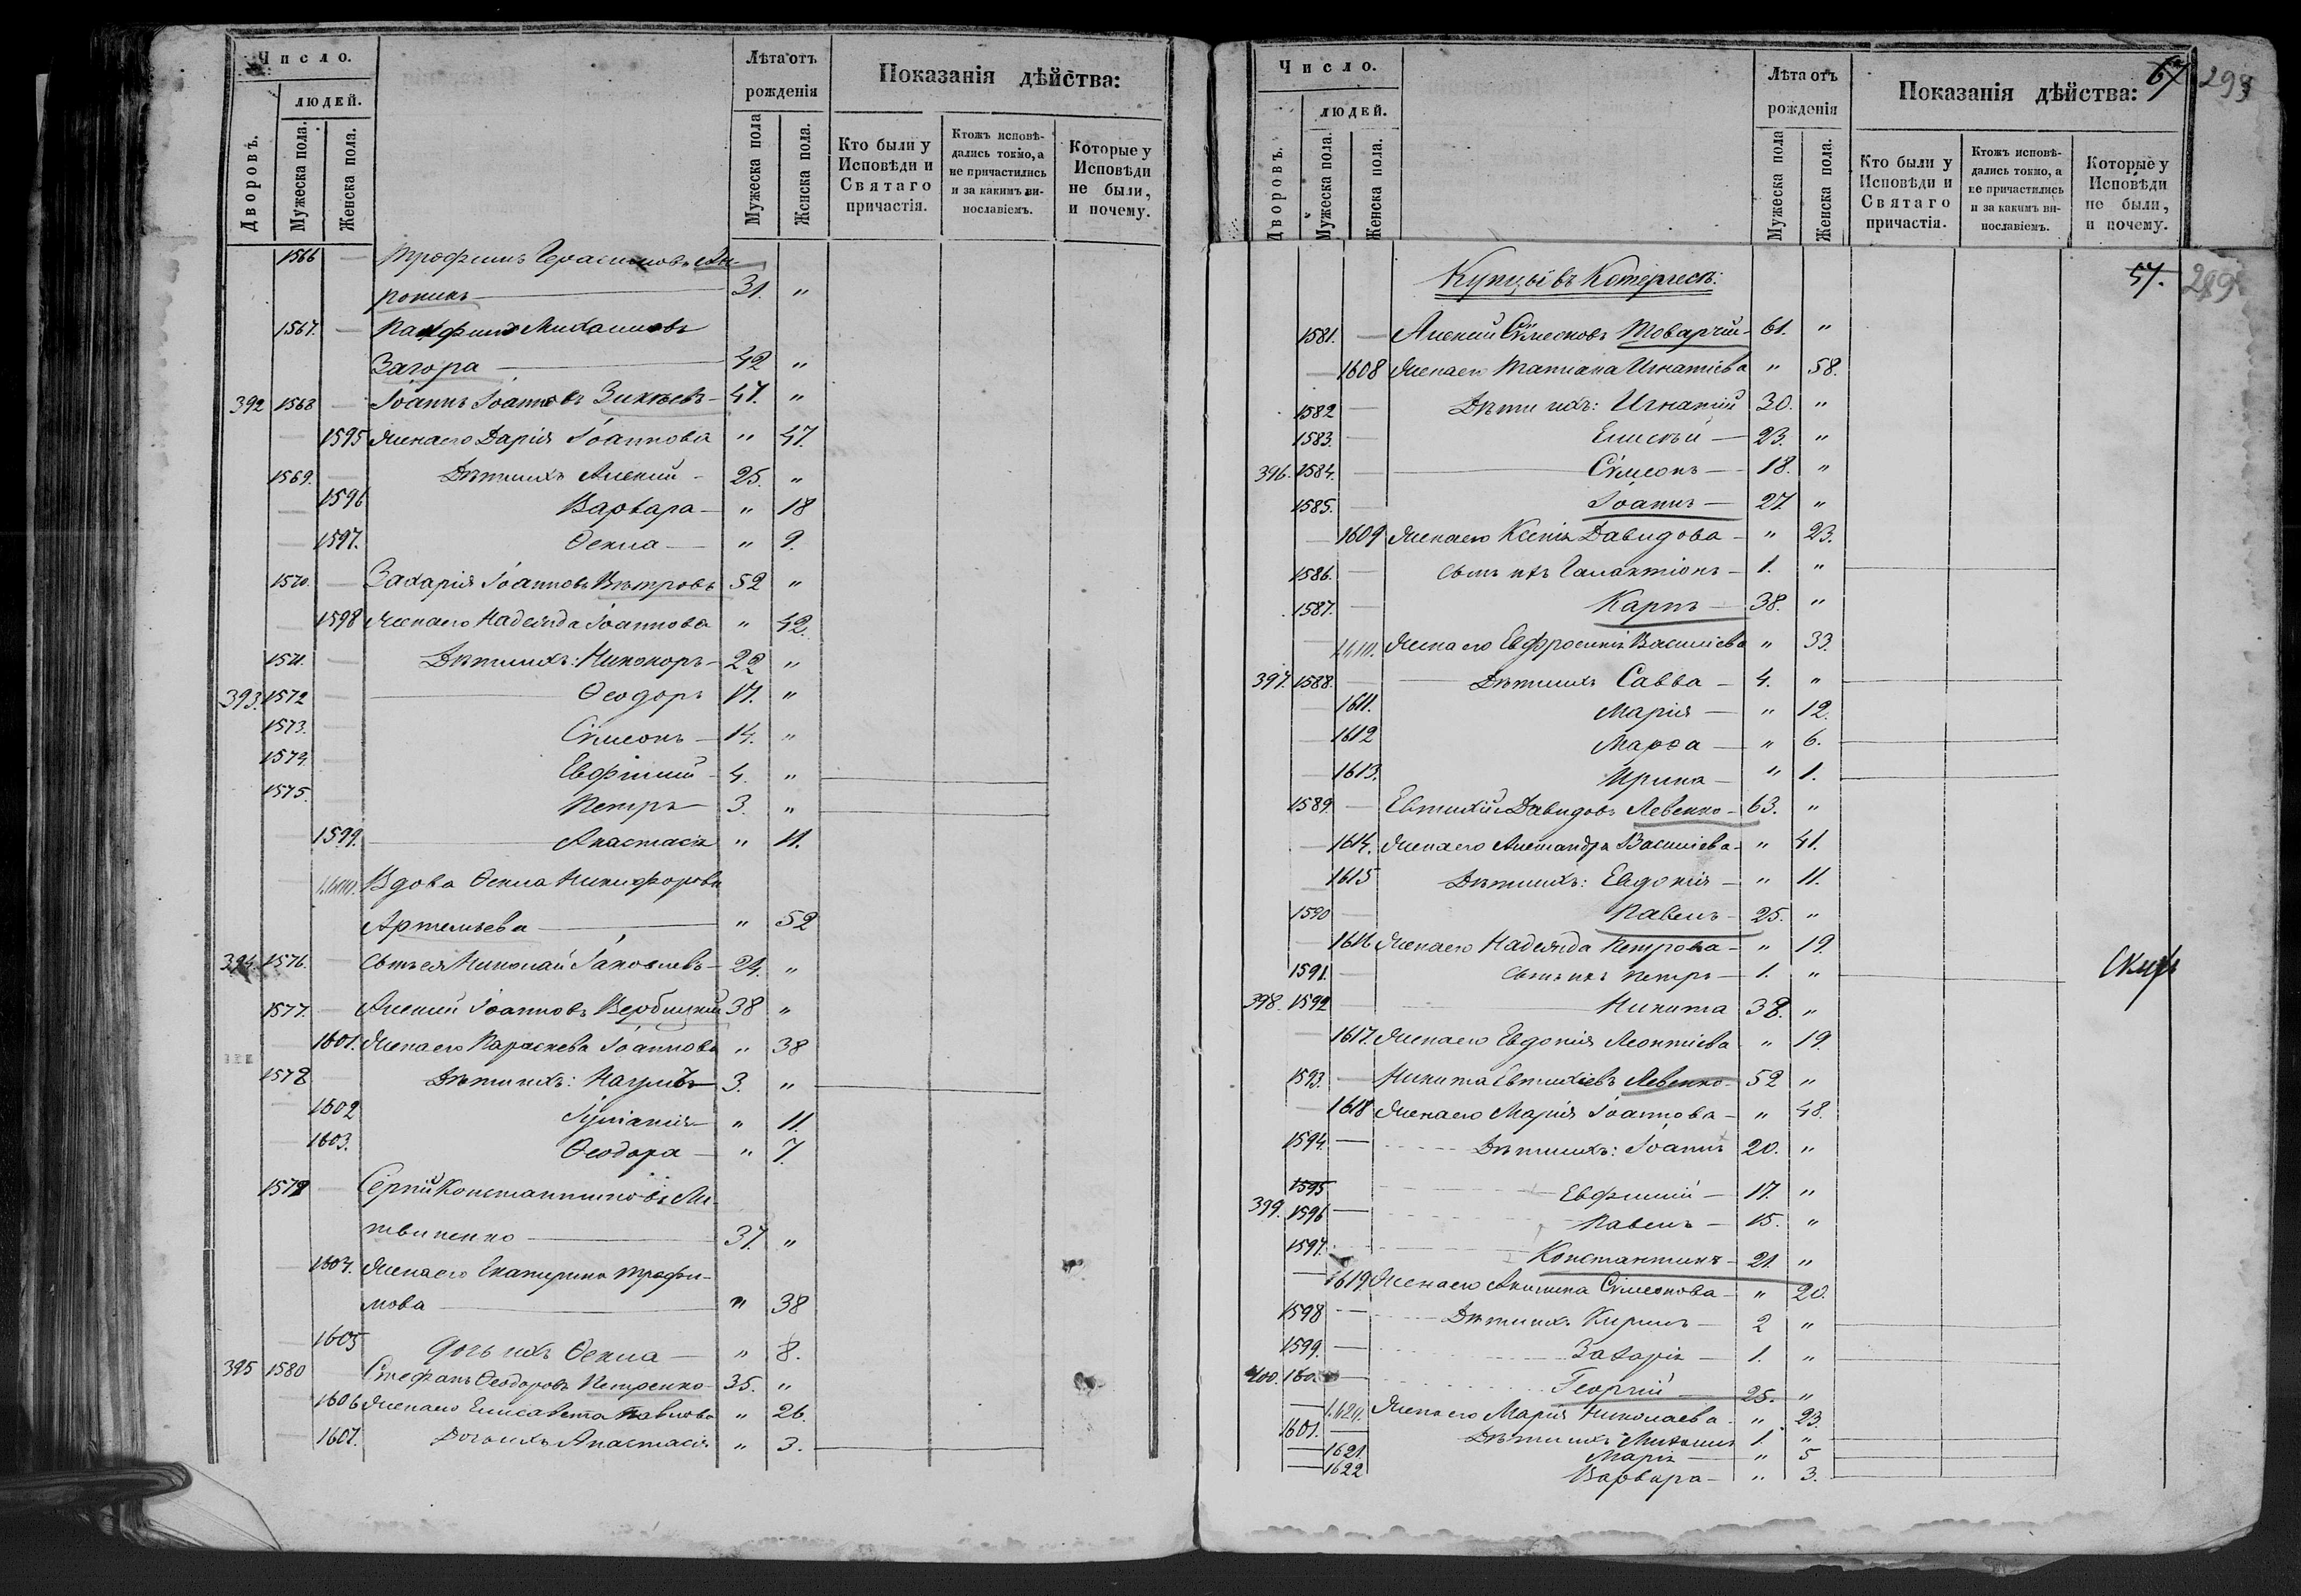 Число.
людей.
Дворовъ.
Мужеска пола.
Женска пола.
Лѣта отъ
рожденія
Мужеска пола
Женска пола.
Показанія дѣйства:
Кто были у
Исповѣди и
Святаго
причастія.
Ктожъ исповѣ-
дались токмо, а
не причастились
и за какимъ ви-
нословіемъ.
Которые у
Исповѣди
не были,
и почему.
1566 — Трофимъ Герасимовъ
31. "
1567. — Михаиловъ
Загора — 42 "
392 1568 — Іоаннъ Іоанновъ Зикѣевъ — 47. "
— 1595 Жена его Дарія Іоаннова " 47.
1569. — Дѣти ихъ Алексій — 25. "
— 1596 Варвара — " 18
— 1597. Ѳекла — " 9.
1570. — Захарія Іоанновъ Вѣтровъ 52 "
— 1598 Жена его Надежда Іоаннова " 42.
1571. — Дѣти ихъ: Никоноръ — 22 "
393. 1572 — Ѳеодоръ 17. "
1573. Сѵмеонъ — 14. "
1574. Евфимій — 4. "
1575. Петръ — 3. "
— 1599. Анастасія " 11.
— Вдова Ѳекла Никифорова
Артемьева — " 52
394. 1576. — Сынъ ея Николай Іаковлевъ — 24. "
1577. — Алексій Іоанновъ Вербицкій 38 "
— 1601. Жена его Параскева Іоаннова " 38
1578 Дѣти ихъ: Наумъ — 3. "
— 1602 Іуліанія — " 11.
— 1603. Ѳеодора — " 7.
1579 — Сергій Константиновъ Ли-
твиненко — 37. "
— 1604. Жена его Екатерина Трофи-
мова — " 38
— 1605 Дочь ихъ Ѳекла — " 8.
395 1580 Стефанъ Ѳеодоровъ Петренко 35. "
— 1606 Жена его Елисавета Павлова " 26.
— 1607. Дочь ихъ Анастасія " 3.
Число.
людей.
Дворовъ.
Мужеска пола.
Женска пола.
Лѣта отъ
рожденія
Мужеска пола
Женска пола.
Показанія дѣйства:
67 298
Кто были у
Исповѣди и
Святаго
причастія.
Ктожъ исповѣ-
дались токмо, а
не причастились
и за какимъ ви-
нословіемъ.
Которые у
Исповѣди
не были,
и почему.
57.
Купцы въ
1581. — Алексій Сѵмеоновъ Товарчій — 61. "
— 1608 Жена его Татіана Игнатіева " 58.
1582 — Дѣти ихъ: Игнатій 30. "
1583. — Елисѣй — 23. "
396. 1584. — Сѵмеонъ — 18. "
1585. — Іоаннъ — 27 "
— 1609 Жена его Ксенія Давидова — " 23.
1586. — Сынъ ихъ Галактіонъ — 1. "
1587. — Карпъ — 38. "
— Жена его Евфросинія Василіева " 33.
397. 1588. — Дѣти ихъ Савва — 4. "
— 1611. Марія — " 12.
— 1612 Марѳа — " 6.
— 1613. Ирина — " 1.
1589. — Евтихій Давидовъ Левенко — 63. "
— 1614. Жена его Александра Василіева — " 41.
— 1615 Дѣти ихъ: Евдокія — " 11.
1590 — Павелъ — 25. "
— 1616 Жена его Надежда Петрова — " 19.
1591. — Сынъ ихъ Петръ — 1. "
398. 1592 — Никита 38. "
— 1617. Жена его Евдокія Леонтіева " 19.
1593. — Никита Евтихіевъ Левенко — 52 "
— 1618 Жена его Марія Іоаннова — " 48.
1594. — Дѣти ихъ: Іоаннъ 20. "
1595 Евфимій — 17. "
399. 1596 — Павелъ — 15. "
1597. Константинъ — 21. "
— 1619 Жена его Акилина Сѵмеонова — " 20.
1598 — Дѣти ихъ Кириллъ — 2 "
1599. — Захарія — 1. "
400. — Георгій — 25. "
— Жена его Марія Николаева — " 23.
1601. — Дѣти ихъ Михаилъ 1. "
— 1621. Марія — " 5
— 1622 Варвара — " 3.